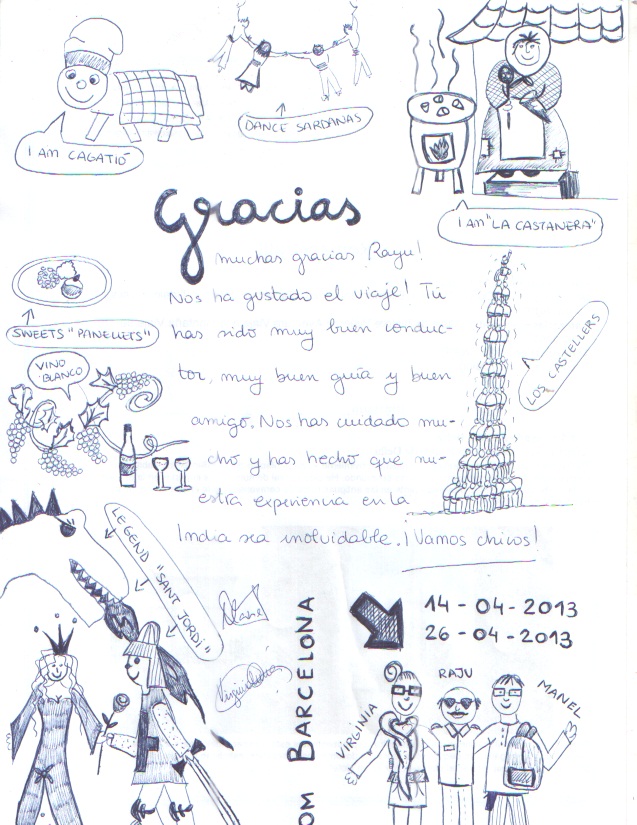 I AM CAGATIÓ
DANCE SARDANAS
I AM "LA CASTANERA"
Gracias
muchas gracias Rayu!
Nos ha gustado el viaje! Tú
has sido muy buen conduc-
tor, muy buen guía y buen
amigo. Nos has cuidado mu-
cho y has hecho que nu-
estra experiencia en la
India sea inolvidable. ¡Vamos chicos!
SWEETS "PANELLETS"
VINO
BLANCO
LOS CASTELLERS
LEGEND "SANT JORDI"
OM BARCELONA
14-04-2013
26-04-2013
VIRGINIA
RAJU
MANEL